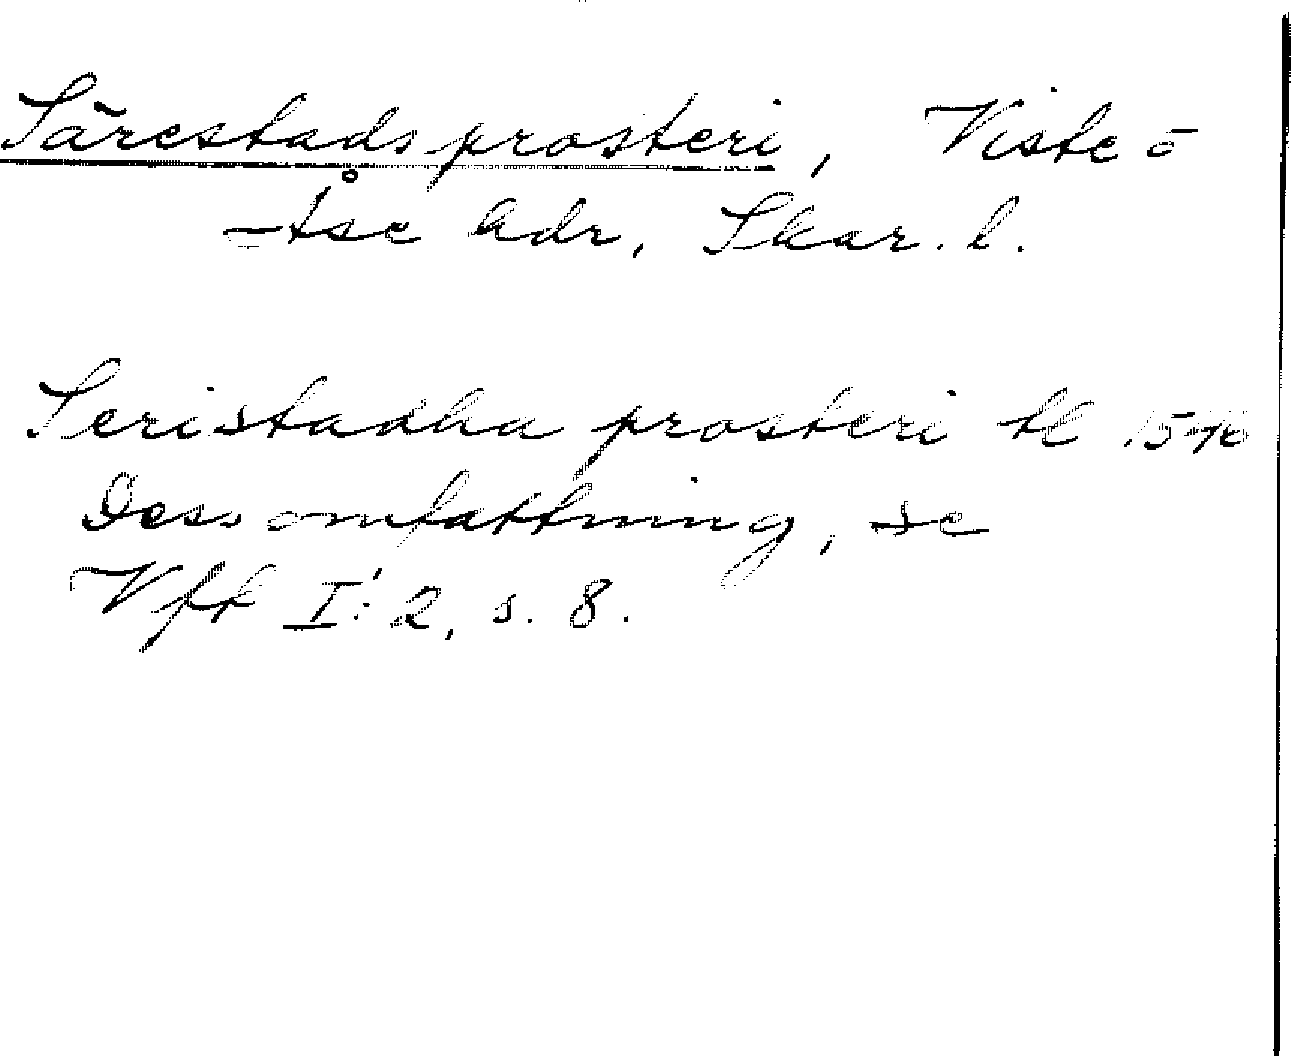 Särestads prosteri, Viste o
Åse hdr, Skar. l.
Seristadha prosteri tl 1546
Dess omfattning, se
Vff I: 2, s. 8.